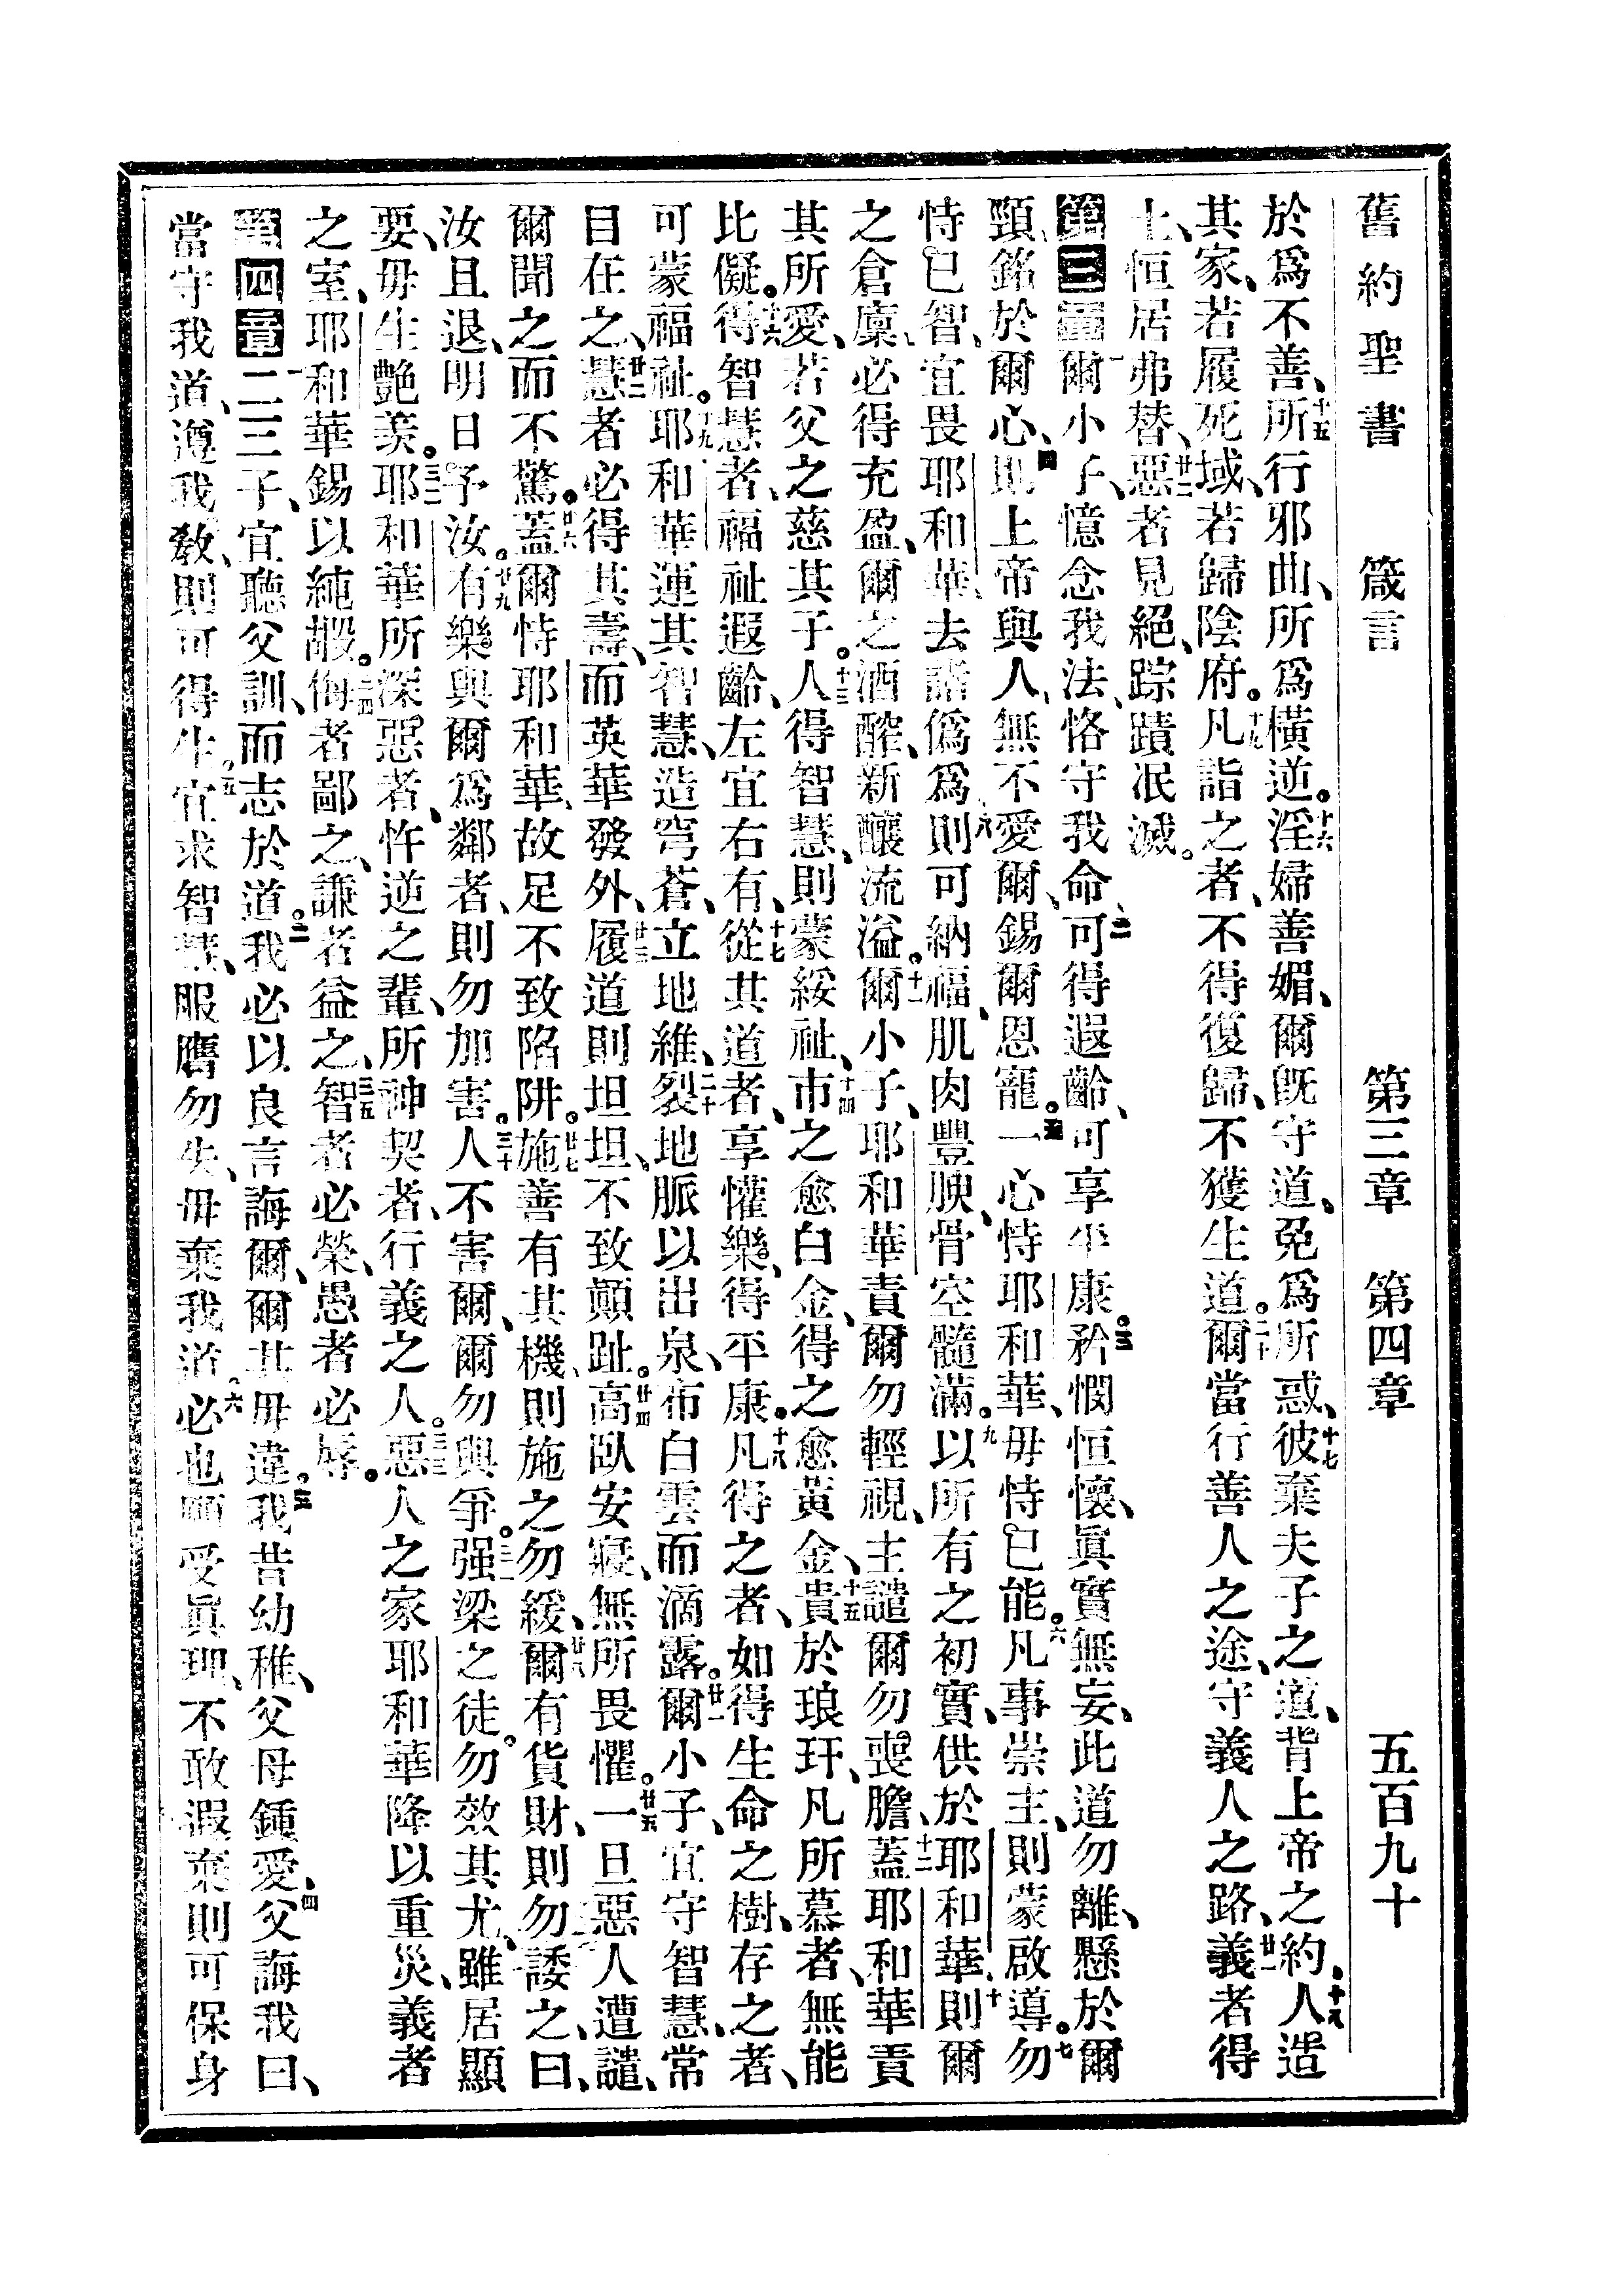 舊約聖書 箴言 第三章 第四章 五百九十
於爲不善、十五所行邪曲、所爲橫逆。十六淫婦善媚、爾旣守道、免爲所惑、十七彼棄夫子之道、背上帝之約、十八人造
其家、若履死域、若歸陰府。十九凡詣之者、不得復歸、不獲生道。二十爾當行善人之途、守義人之路、廿一義者得
土、恒居弗替、廿二惡者見絕、踪蹟泯滅。
第三章一爾小子、憶念我法、恪守我命、二可得遐齡、可享平康。三矜憫恒懷、眞實無妄、此道勿離、懸於爾
頸、銘於爾心、四則上帝與人、無不愛爾、錫爾恩寵。五一心恃耶和華、毋恃己能。六凡事崇主、則蒙啟導。七勿
恃己智、宜畏耶和華、去諸僞爲、八則可納福、肌肉豐腴、骨空髓滿。九以所有之初實、供於耶和華、十則爾
之倉廩、必得充盈、爾之酒醡、新釀流溢。十一爾小子、耶和華責爾勿輕視、主譴爾勿喪膽、十二蓋耶和華責
其所愛、若父之慈其子。十三人得智慧、則蒙綏祉、十四市之愈白金、得之愈黃金、十五貴於琅玕、凡所慕者、無能
比儗。十六得智慧者、福祉遐齡、左宜右有、十七從其道者、享懽樂、得平康。十八凡得之者、如得生命之樹、存之者、
可蒙福祉。十九耶和華運其智慧、造穹蒼、立地維、二十裂地脈以出泉、布白雲而滴露。廿一爾小子、宜守智慧、常
目在之、廿二慧者必得其壽、而英華發外、廿三履道則坦坦、不致顚趾。廿四高臥安寢、無所畏懼。廿五一旦惡人遭譴、
爾聞之而不驚。廿六蓋爾恃耶和華、故足不致陷阱。廿七施善有其機、則施之勿緩、廿八爾有貨財、則勿諉之、曰、
汝且退、明日予汝。廿九有樂與爾爲鄰者、則勿加害。三十人不害爾、爾勿與爭。三一强梁之徒。勿效其尤、雖居顯
要、毋生艶羡。三二耶和華所深惡者、忤逆之輩、所神契者、行義之人。三三惡人之家耶和華降以重災、義者
之室、耶和華錫以純嘏。三四侮者鄙之、謙者益之、三五智者必榮、愚者必辱。
第四章一二三子、宜聽父訓、而志於道。二我必以良言誨爾、爾其毋違。三我昔幼稚、父母鍾愛、四父誨我曰、
當守我道、遵我敎、則可得生。五宜求智慧、服膺勿失、毋棄我道。六必也願受眞理、不敢遐棄則可保身